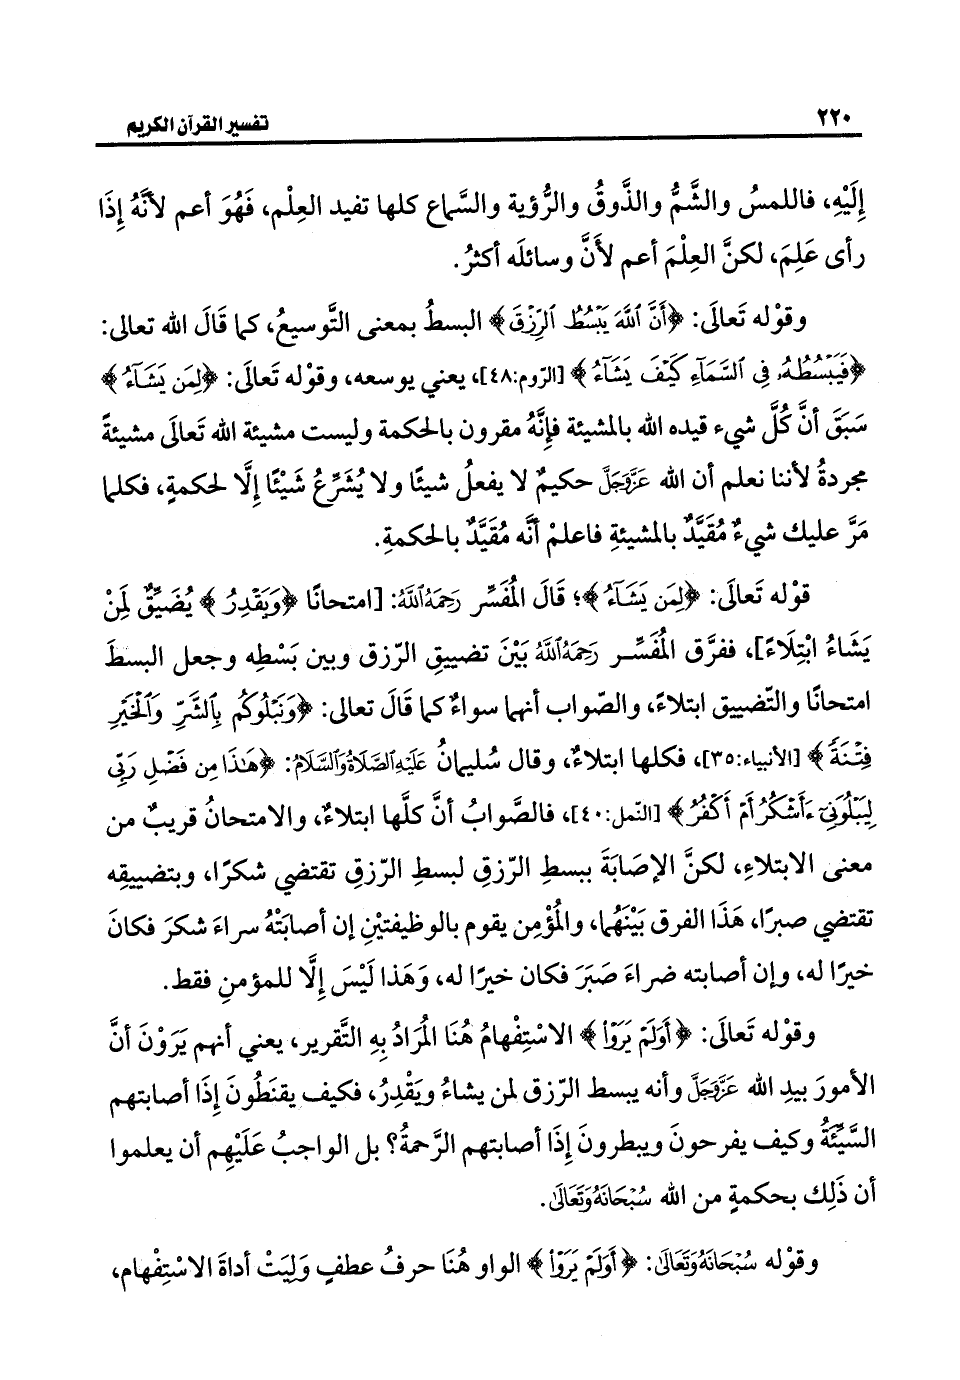 ٢٢٠
تفسير القرآن الكريم
إِلَيْهِ، فاللمسُ والشَّمُّ والذَّوقُ والرُّؤية والسَّماع كلها تفيد العِلْم، فَهُوَ أعم لأنَّهُ إِذَا
رأى عَلِمَ، لكنَّ العِلْمَ أعم لأَنَّ وسائلَه أكثرُ.
وقوْله تَعالَى: ﴿أَنَّ ٱللَّهَ يَبْسُطُ ٱلرِّزْقَ﴾ البسطُ بمعنى التَّوسيعُ، كما قَالَ الله تعالى:
﴿فَيَبْسُطُهُۥ فِى ٱلسَّمَآءِ كَيْفَ يَشَآءُ﴾ [الرّوم:٤٨]، يعني يوسعه، وقوْله تَعَالَى: ﴿لِمَن يَشَآءُ﴾
سَبَقَ أنَّ كُلَّ شيء قيده الله بالمشيئة فإِنَّهُ مقرون بالحكمة وليست مشيئة الله تَعالَى مشيئةً
مجردةُ لأننا نعلم أن الله عَزَّوَجَلَّ حكيمٌ لا يفعلُ شيئًا ولا يُشَرِّعُ شَيْئًا إِلَّا لحكمةٍ، فكلما
مَرَّ عليك شيءٌ مُقَيَّدٌ بالمشيئةِ فاعلمْ أنَّه مُقَيَّدٌ بالحكمةِ.
قوْله تَعالَى: ﴿لِمَن يَشَآءُ﴾؛ قَالَ المُفَسِّر رَحِمَهُ ٱللَّهُ: [امتحانًا ﴿وَيَقْدِرُ﴾ يُضَيِّقٌ لِمَنْ
يَشَاءُ ابْتِلَاءً]، ففرَّق المُفَسِّر رَحِمَهُ ٱللَّهُ بَيْنَ تضييقِ الرّزق وبين بَسْطِه وجعل البسطَ
امتحانًا والتّضييق ابتلاءً، والصّواب أنهما سواءٌ كما قَالَ تعالى: ﴿وَنَبْلُوكُم بِٱلشَّرِّ وَٱلْخَيْرِ
فِتْنَةً﴾ [الأنبياء:٣٥]، فكلها ابتلاءٌ، وقال سُليمانُ عَلَيْهِ ٱلصَّلَاةُ وَٱلسَّلَامُ: ﴿هَٰذَا مِن فَضْلِ رَبِّى
لِيَبْلُوَنِىٓ ءَأَشْكُرُ أَمْ أَكْفُرُ﴾ [النّمل:٤٠]، فالصَّوابُ أنَّ كلَّها ابتلاءٌ، والامتحانُ قريبٌ من
معنى الابتلاءِ، لكنَّ الإصَابَةَ ببسطِ الرّزقِ لبسطِ الرّزقِ تقتضي شكرًا، وبتضييقِه
تقتضي صبرًا، هَذَا الفرق بَيْنَهُما، والمُؤْمِن يقوم بالوظيفتيْنِ إن أصابَتْهُ سراءَ شكرَ فكانَ
خيرًا له، وإن أصابته ضراءَ صَبَرَ فكان خيرًا له، وَهَذا لَيْسَ إِلَّا للمؤمنِ فقط.
وقوْله تَعالَى: ﴿أَوَلَمْ يَرَوْا۟﴾ الاسْتِفْهامُ هُنَا المُرَادُ بِهِ التَّقرير، يعني أنهم يَرَوْنَ أنَّ
الأمورَ بيدِ الله عَزَّوَجَلَّ وأنه يبسط الرّزق لمن يشاءُ ويَقْدِرُ، فكيف يقنَطُونَ إِذَا أصابتهم
السَّيِّئَةُ وكيف يفرحونَ ويبطرونَ إِذَا أصابتهم الرَّحمةُ؟ بل الواجبُ عَلَيْهِم أن يعلموا
أن ذَلِك بحكمةٍ من الله سُبْحَانَهُ وَتَعَالَىٰ.
وقوْله سُبْحَانَهُ وَتَعَالَىٰ: ﴿أَوَلَمْ يَرَوْا۟﴾ الواو هُنَا حرفُ عطفٍ وَلِيَتْ أداةَ الاسْتِفْهام،